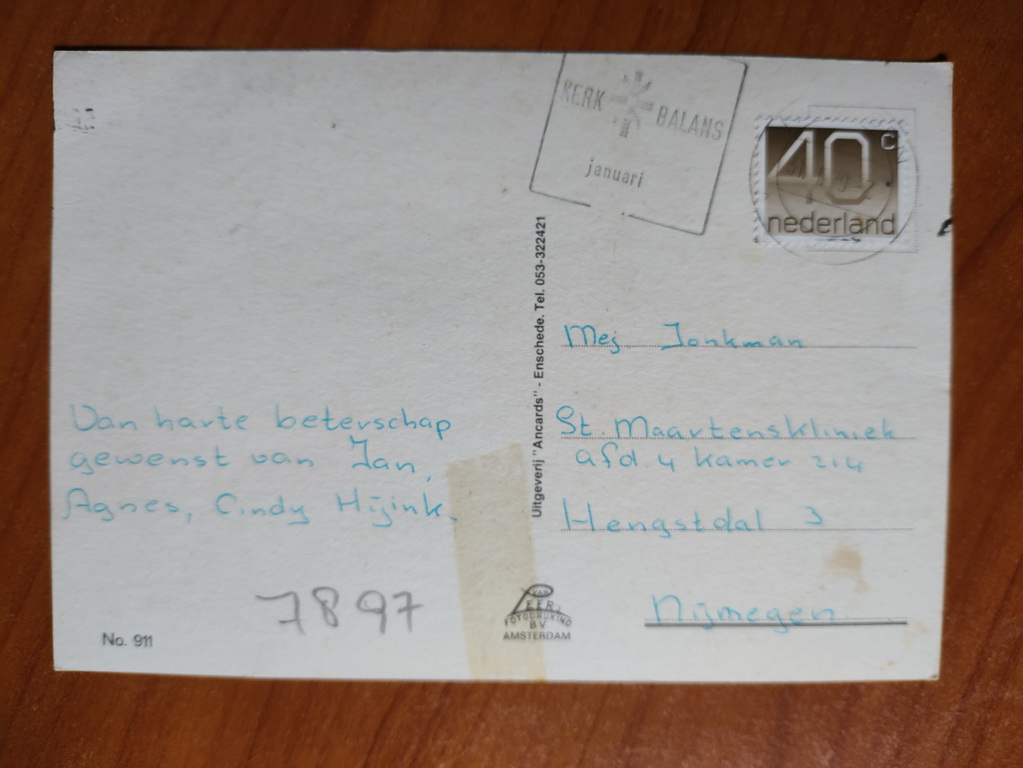 KERK BALANS
januari
40 c
nederland
Uitgeverij "Ancards" - Enschede. Tel. 053-322421
Mej. Jonkman
St. Maartenskliniek
afd. 4 kamer 214
Hengstdal 3
Nijmegen
Van harte beterschap
gewenst van Jan,
Agnes, Cindy Hijink.
7897
No. 911
VAN
LEER's
FOTODRUKIND
B.V.
AMSTERDAM